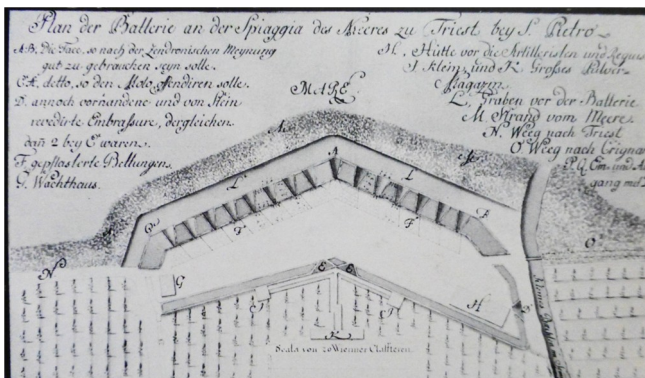 Plan der Batterie an der Spiaggia des Meeres zu Triest bey S. Pietro
A.B. die Face, so nach der Zendronischen Meynung
gut zu gebrauchen seyn solle.
C.A. detto, so den Molo offendiren solle.
D. annoch vorhandene und von Stein
revedirte Embrassure, dergleichen
dañ 2 bey E waren.
F. gepflosterte Bettungen.
G. Wachthaus.
H. Hütte vor die Artilleristen und
I. Klein und K. Großes Pulver
Magazin.
L. Graben vor der Batterie
M. Strand vom Meere
N. Weeg nach Triest
O. Weeg nach
P. Q. Ein- und
gang mit
MARE
M
M
A
L
L
C
B
F
F
N
O
G
E
E
D
I
I
H
K
Scala von 20 Wienner Klafftern.